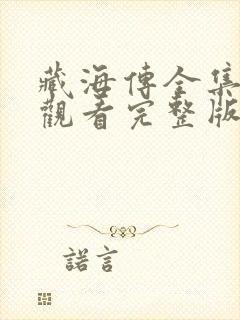 藏海傳全集
觀看完整版
諾言